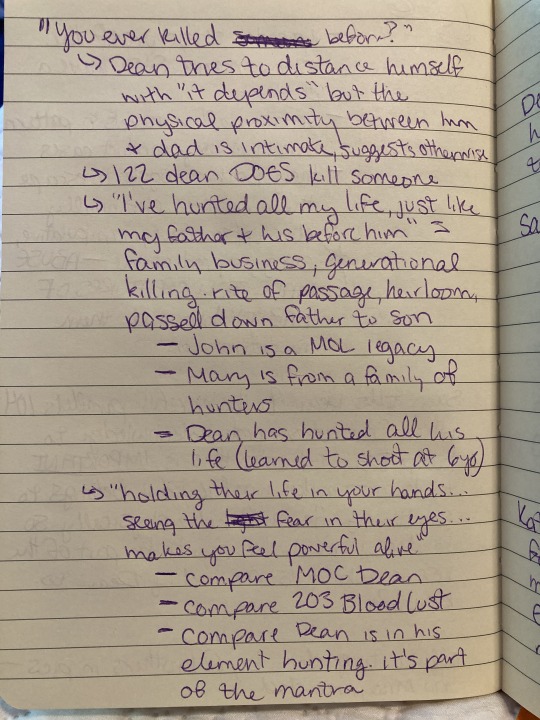 "You ever killed before?"
↳ Dean tries to distance himself
with "it depends" but the
physical proximity between him
+ dad is intimate, suggests otherwise
↳ 122 dean DOES kill someone
↳ "I've hunted all my life, just like
my father + his before him" =
family business, generational
killing. rite of passage, heirloom,
passed down father to son
- John is a MOL legacy
- Mary is from a family of
hunters
- Dean has hunted all his
life (learned to shoot at 6yo)
↳ "holding their life in your hands...
seeing the fear in their eyes...
makes you feel powerful alive"
- compare MOC Dean
- compare 203 Blood Lust
- compare Dean is in his
element hunting. it's part
of the mantra